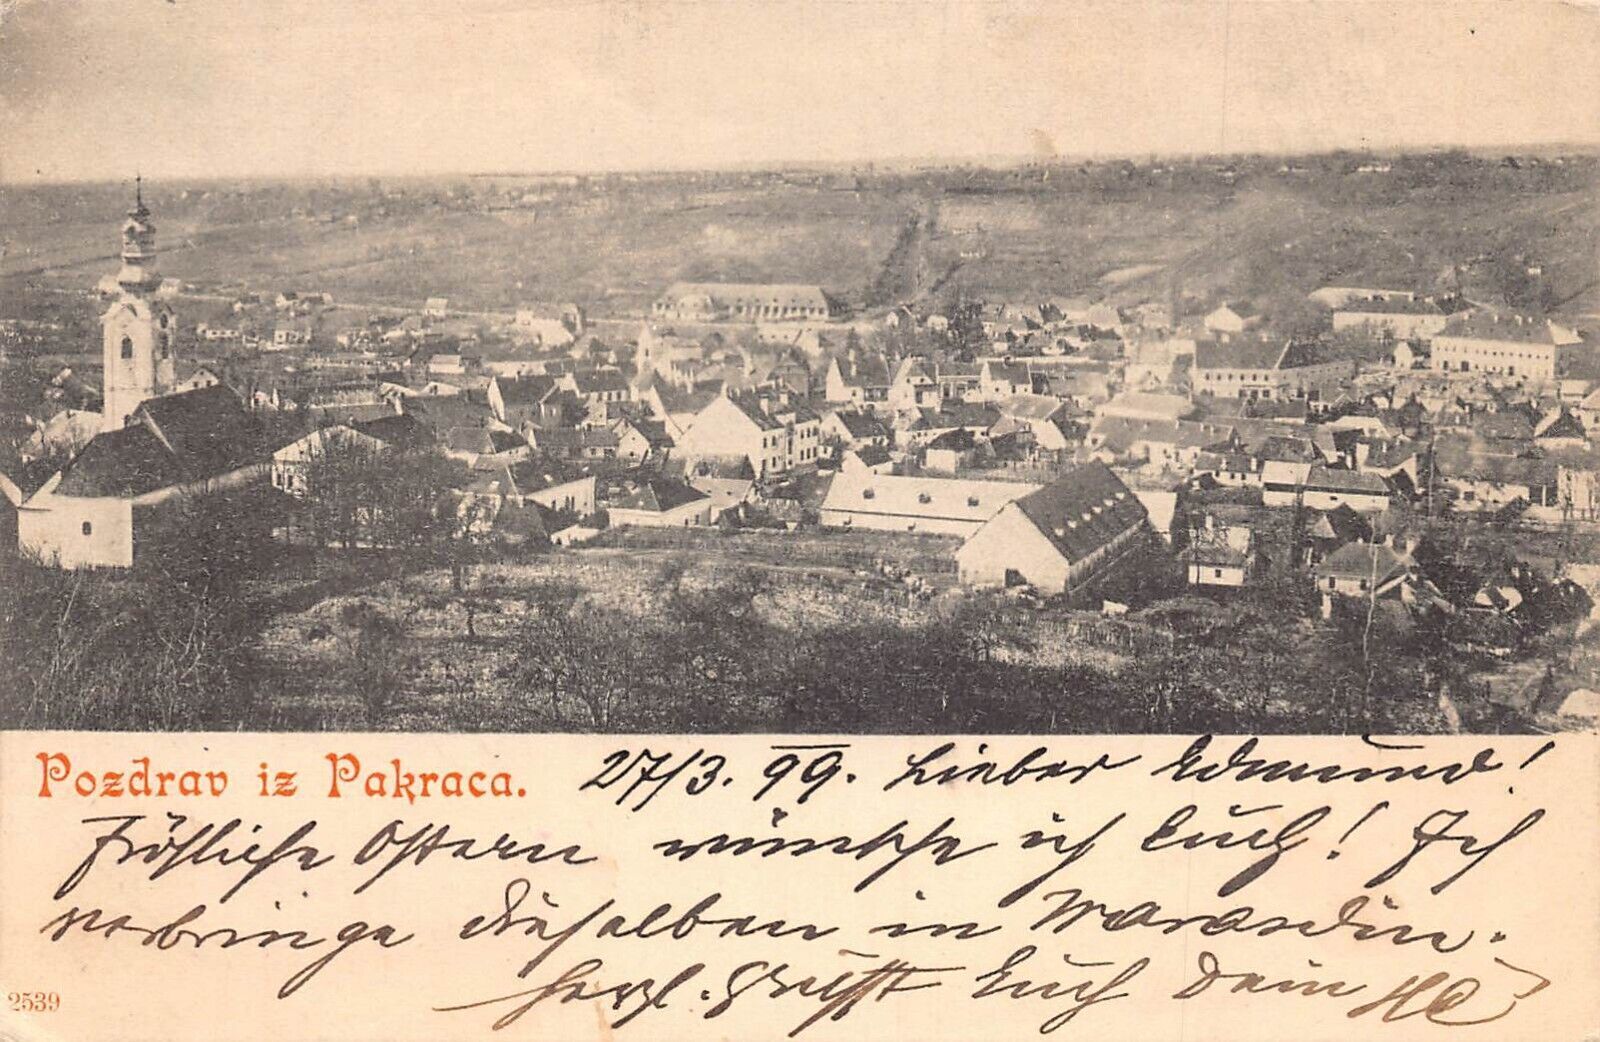 Pozdrav iz Pakraca. 27/3. 99. Lieber Edmund!
Fröhliche Ostern wünsche ich Euch! Ich
verbringe dieselben in Warasdin.
Herzl. Grüßt Euch Dein
2539